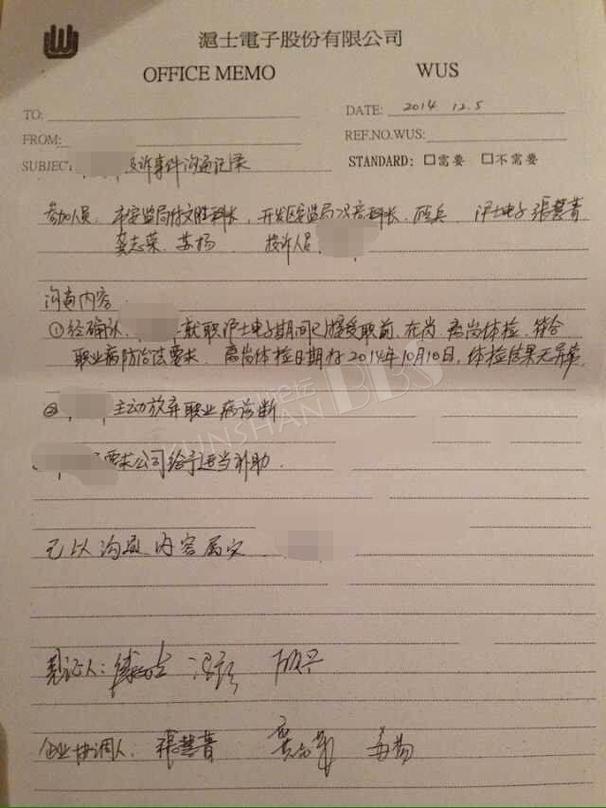 滬士電子股份有限公司
OFFICE MEMO WUS
TO: DATE: 2014 12.5
FROM: REF.NO.WUS:
SUBJEC 投诉事件沟通记录 STANDARD: □需要 □不需要
参加人员: 市安监局付文胜科长, 开发区安监局 科长, 顾兵, 沪士电子 張慧菁
龚志荣, 苏扬 投诉人员
沟通内容
①经确认, 就职沪士电子期间已接受职前, 在岗, 离岗体检, 符合
职业病防治法要求. 离岗体检日期为2014年10月10日, 体检结果无异常
② 主动放弃职业病诊断
要求公司给予适当补助.
已以沟通内容属实
見证人: 顾兵
企业协调人: 張慧菁 苏扬
KUNSHAN BBS